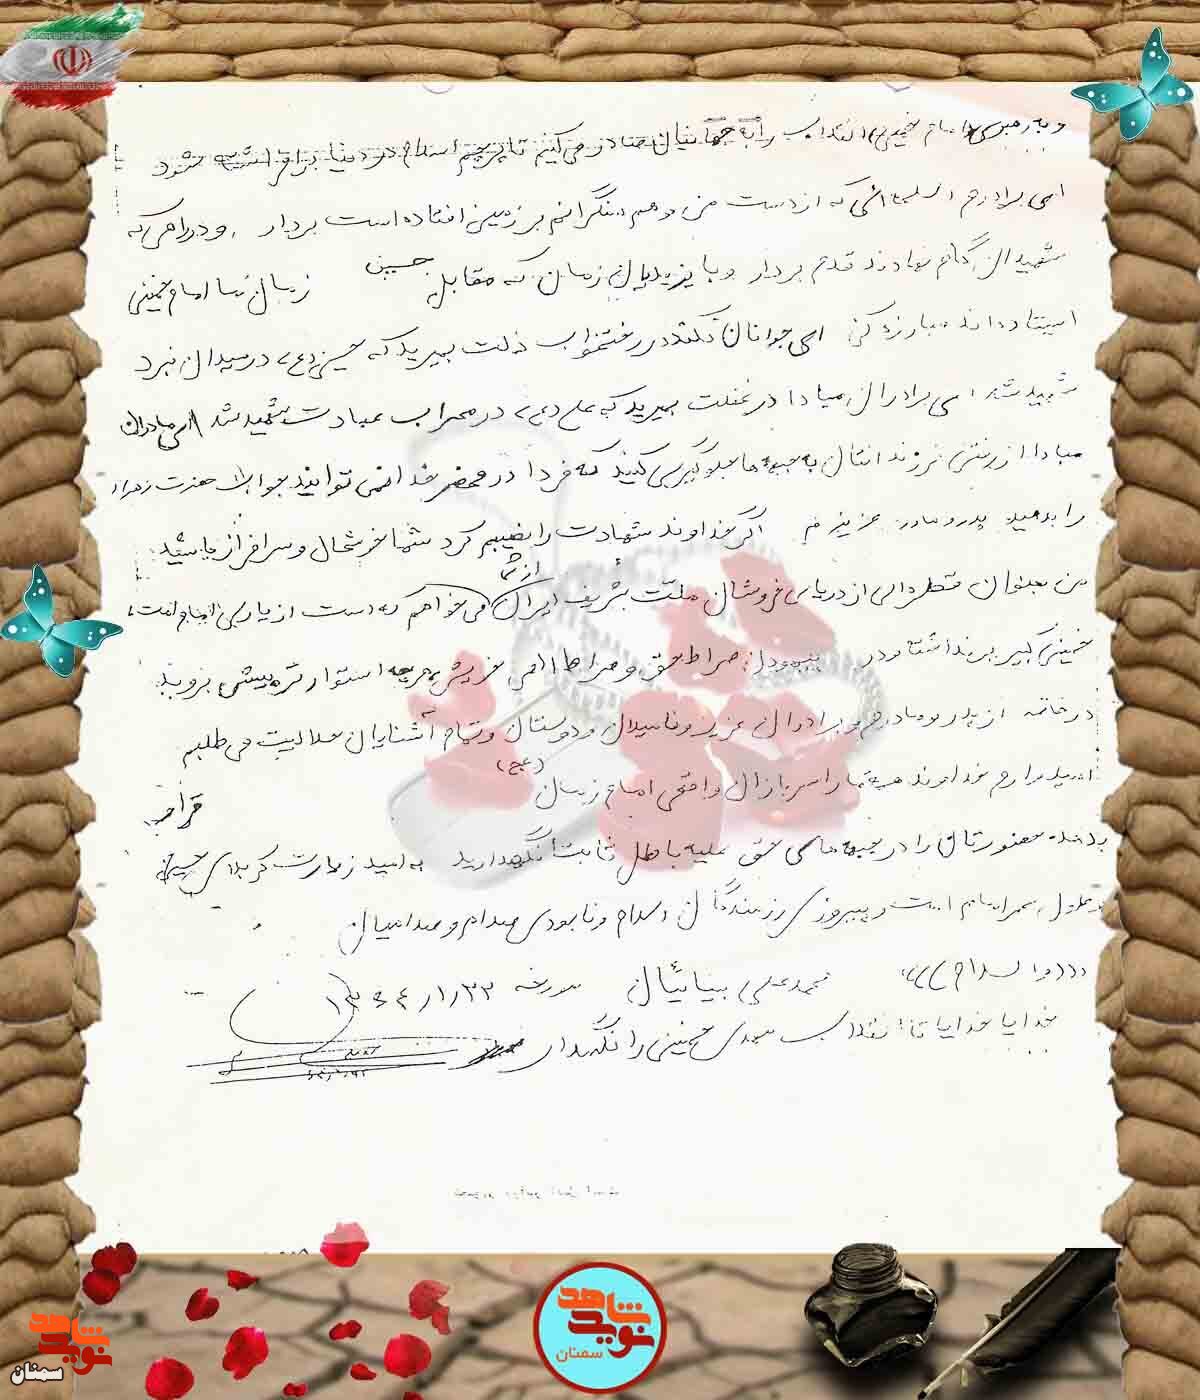 و به رهبری امام خمینی انقلاب را به جهانیان صادر می‌کنیم تا پرچم اسلام در دنیا برافراشته شود
ای برادرم اسلحه‌ای که از دست من و هم سنگرانم بر زمین افتاده است بردار و در راهی که
شهیدان گام نهادند قدم بردار و با یزیدیان زمان که مقابل حسین زمان ما امام خمینی
ایستاده‌اند مبارزه کن ای جوانان نکند در رختخواب ذلت بمیرید که حسین (ع) در میدان نبرد
شهید شد ای برادران مبادا در غفلت بمیرید که علی (ع) در محراب عبادت شهید شد ای مادران
مبادا از رفتن فرزندانتان به جبهه‌ها جلوگیری کنید که فردا در محضر خدا نمی‌توانید جواب حضرت زهرا
را بدهید پدر و مادر عزیزم اگر خداوند شهادت را نصیبم کرد شما خوشحال و سرافراز باشید
من بعنوان قطره‌ای از دریای خروشان ملت شریف ایران از شما می‌خواهم که دست از یاری امام امت
خمینی کبیر برنداشته و در پیمودن صراط حق و صراط الهی خویش هر چه استوارتر به پیش بروید
در خاتمه از پدر و مادرم و برادران عزیز و فامیلان و دوستان و تمام آشنایان حلالیت می‌طلبم
امیدوارم خداوند همه ما را سربازان واقعی امام زمان (عج) قرار
بدهد حضورتان را در جبهه‌های حق علیه باطل ثابت نگهدارید به امید زیارت کربلای حسین
و طول عمر امام امت و پیروزی رزمندگان اسلام و نابودی صدام و صدامیان
(((والسلام))) محمدعلی بینائیان مورخه ۱۳۶۴/۱/۲۲
خدایا خدایا تا انقلاب مهدی خمینی را نگهدار
شاهد
نوید
سمنان
شاهد
نوید
سمنان